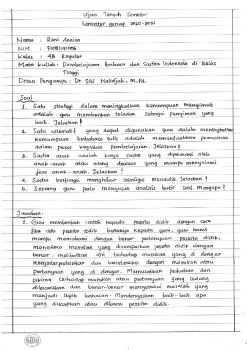 Ujian Tengah Semester
Semester genap 2020-2021
Nama : Rani Annisa
Kelas : 4B Reguler
Mata Kuliah : Pembelajaran Bahasa dan Sastra Indonesia di Kelas
Tinggi
Dosen Pengampu : Dr. Siti Halidjah, M.Pd.
Soal
1. Satu strategi dalam meningkatkan kemampuan menyimak
adalah guru memberikan teladan sebagai penyimak yang
baik. Jelaskan!
2. Satu alternatif yang dapat digunakan guru dalam meningkatkan
kemampuan berbahasa tulis adalah memanfaatkan permainan
dalam proses kegiatan pembelajaran. Jelaskan!
3. Sastra anak adalah karya sastra yang
anak atau orang dewasa yang mampu mengisi
jiwa anak-anak. Jelaskan!
4. Sastra berfungsi menghibur sekaligus mendidik. Jelaskan!
5. Seorang guru perlu menguasai analisis butir soal. Mengapa?
Jawaban :
1. Guru memberikan contoh kepada peserta didik dengan cara
jika ada peserta didik bertanya kepada guru, guru harus
mampu memahami dengan benar pertanyaan peserta didik,
masukan yang disampaikan peserta didik dengan
benar, melibatkan diri terhadap masukan yang di dengar,
menginterpretasikan dan berinteraksi dengan masukan atau
pertanyaan yang di dengar. Memusatkan perhatian dan
pikiran terhadap masukan atau pertanyaan yang sedang
dibicarakan dan benar-benar mengetahui masalah yang
menjadi topik bahasan. Mendengarkan baik-baik apa
yang diucapkan atau dibaca peserta didik.
SIDU